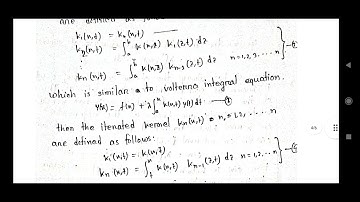 are defined as follows
k₁(x,t) = k₀(x,t)
k₂(x,t) = ∫ₐᵇ k(x,z) k₁(z,t) dz
⋮
kₙ(x,t) = ∫ₐᵇ k(x,z) kₙ₋₁(z,t) dz n=1,2,3,....n
which is similar to volterra integral equation.
y(x) = f(x) + λ∫ₐˣ k(x,t) y(t) dt.
then the iterated kernel kₙ(x,t) n=1,2,....n
are defined as follows:
k₁(x,t) = k(x,z)
kₙ(x,t) = ∫ₜˣ k(x,z) kₙ₋₁(z,t) dz n=1,2,...n